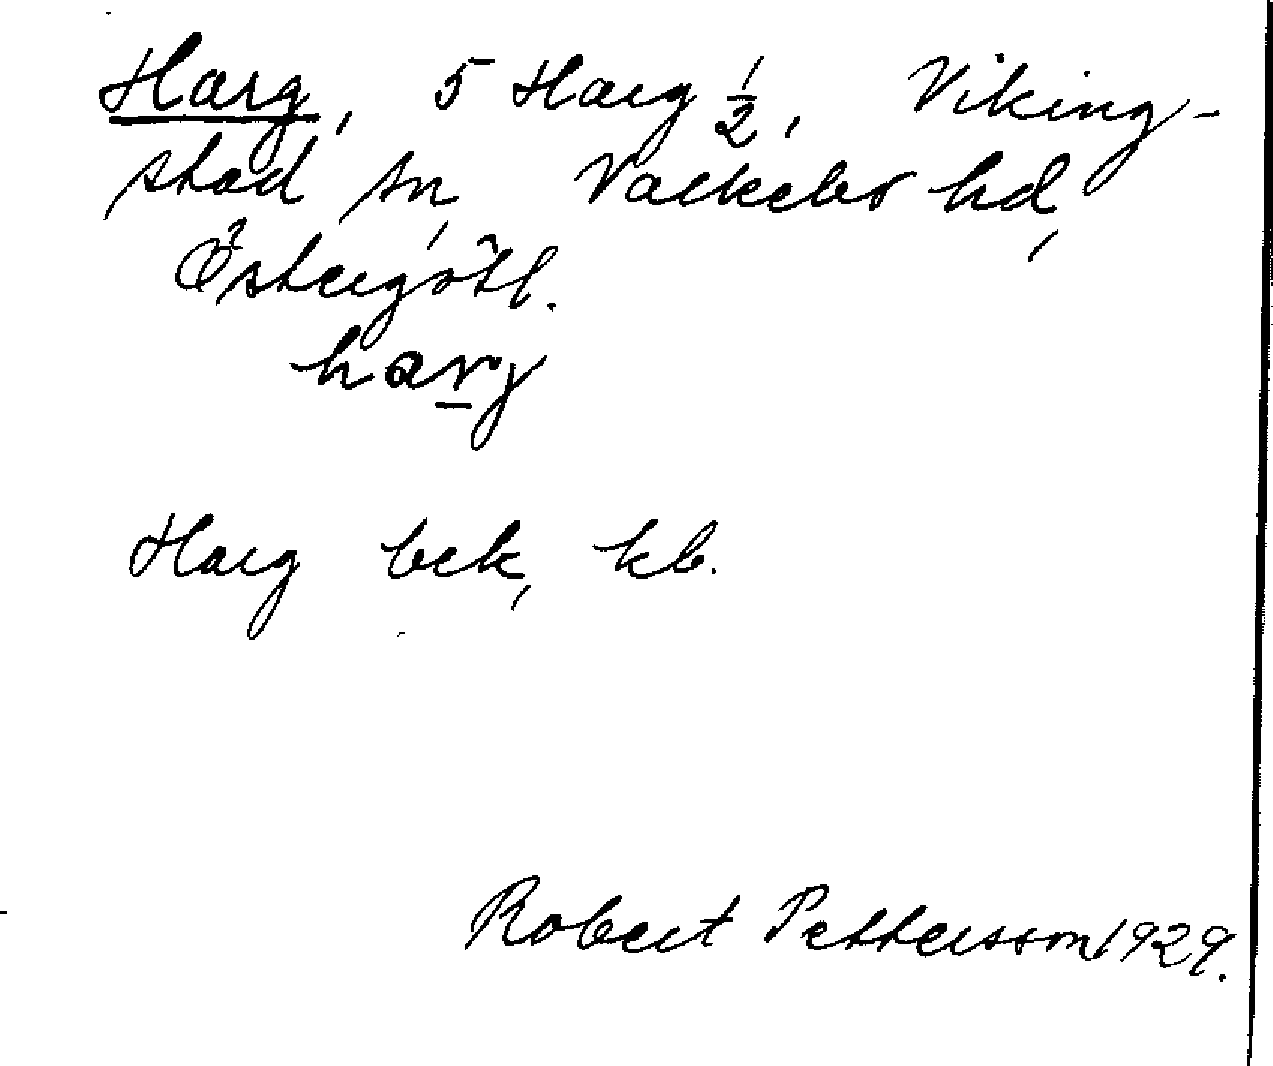 Harg, 5 Harg ½, Viking-
stad sn, Valkebo hd,
Östergötl.
harg
Harg bek, kb.
Robert Pettersson 1929.